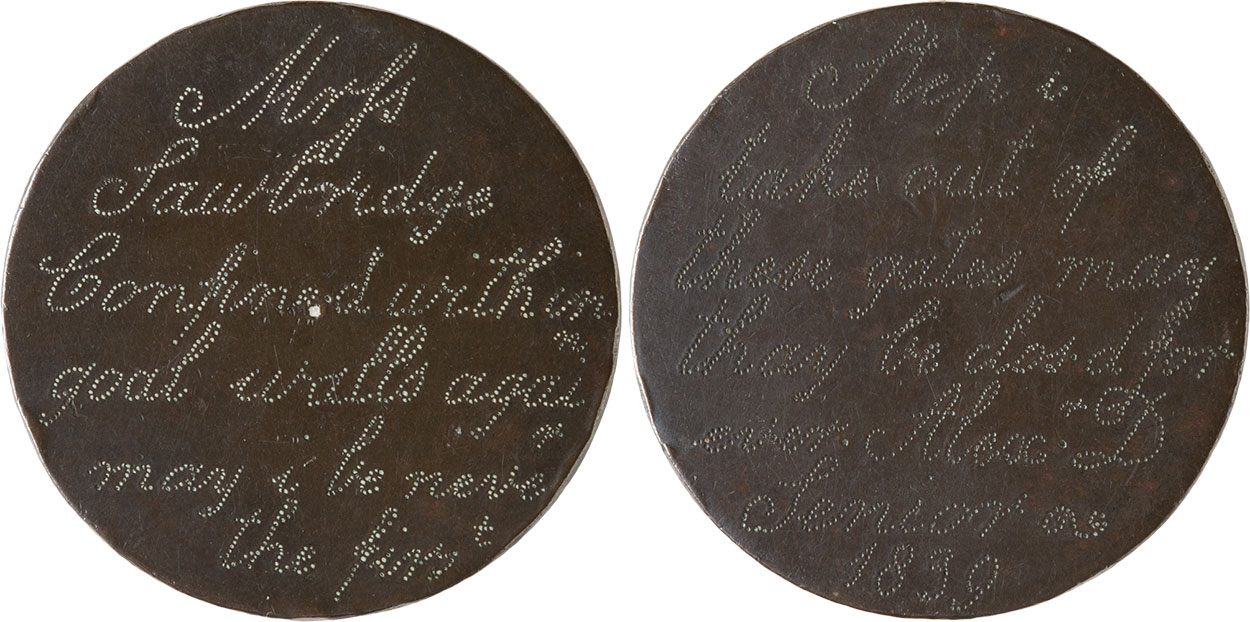 Moſs
Sawbridge
Confined within
goal walls agaiⁿ
may i be neveʳ
the firsᵗ
Step i
take out of
these gates may
thay be closd for
ever Alexʳ D
Senior ae
1839